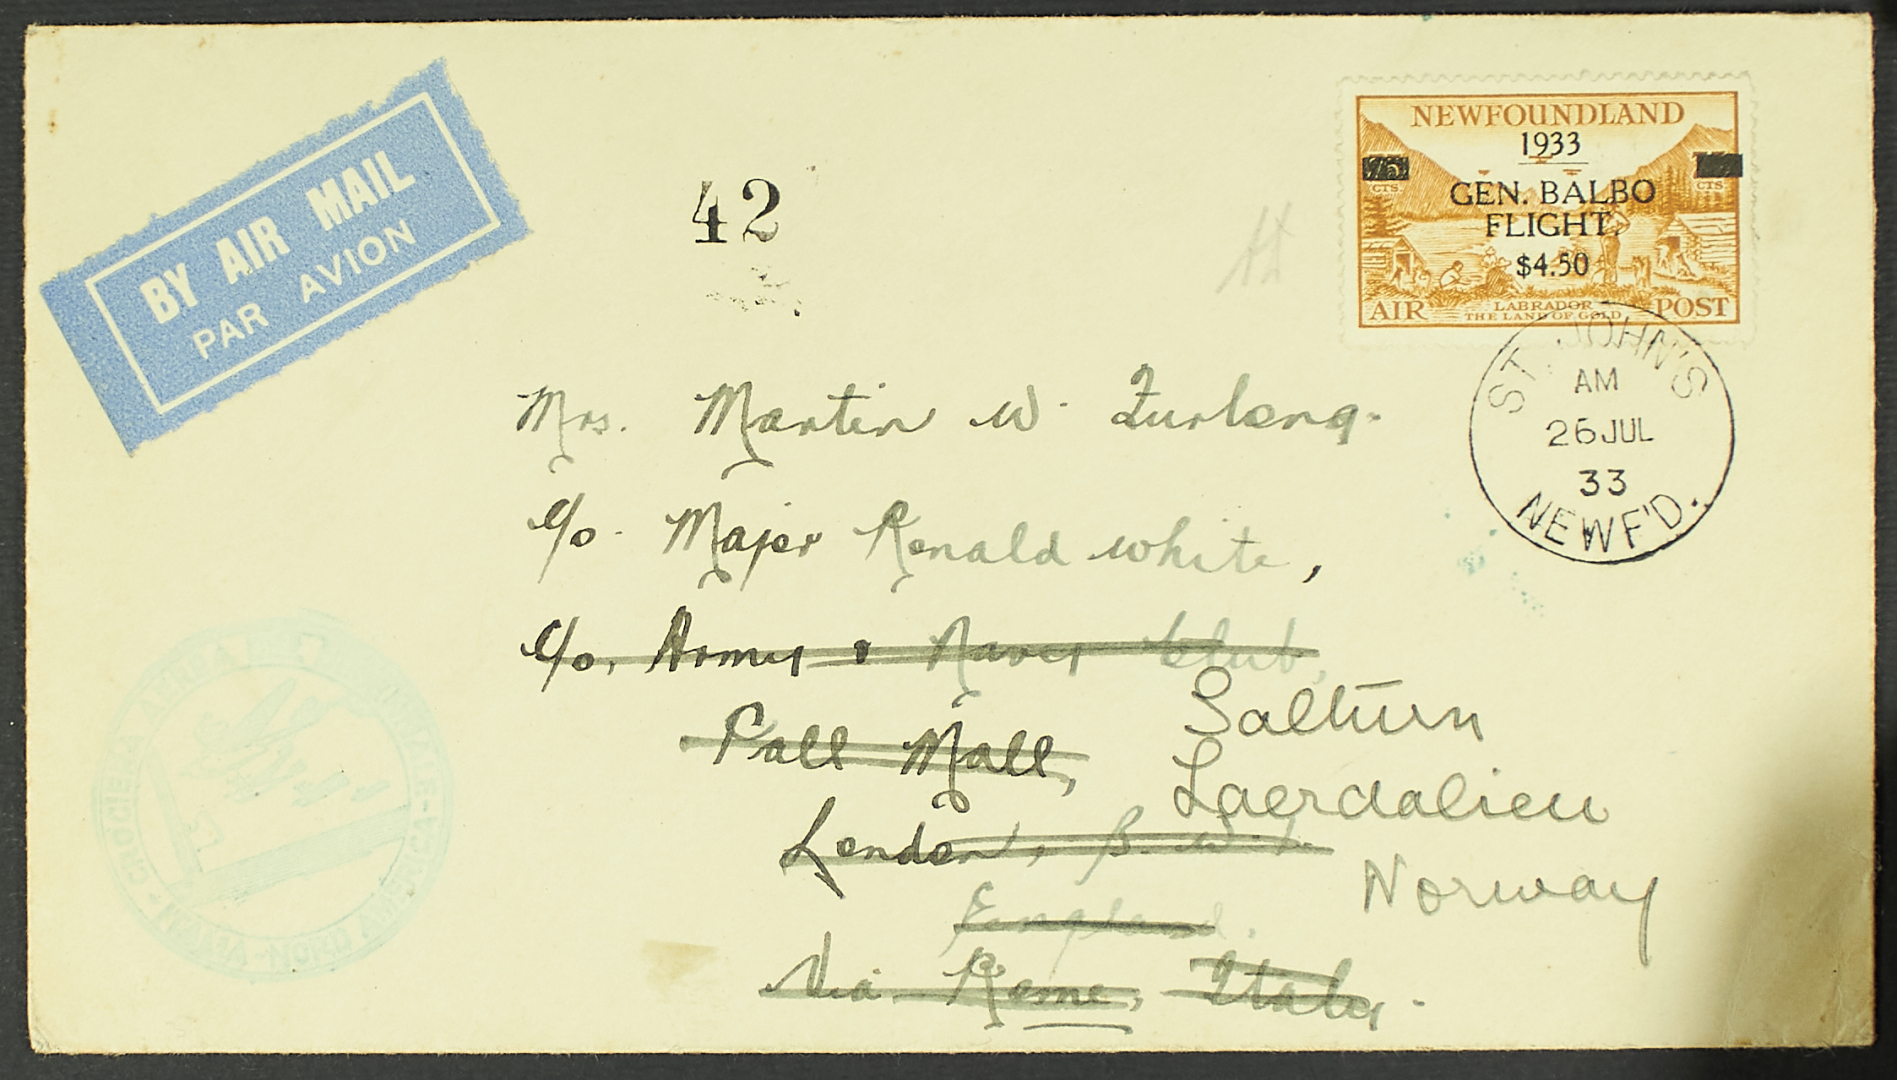 BY AIR MAIL
PAR AVION
42
NEWFOUNDLAND
1933
GEN. BALBO
FLIGHT.
$4.50
75
CTS.
CTS
AIR
LABRADOR
THE LAND OF GOLD
POST
ST. JOHN'S
AM
26 JUL
33
NEWF'D.
Mrs. Martin W. Furlong.
C/o. Major Ronald White,
C/o, Army & Navy Club,
Pall Mall,
London, S.W.1.
England.
Via Rome, Italy.
Laerdalien
Norway
CROCIERA AEREA DEL DECENNALE
ROMA - NORD AMERICA